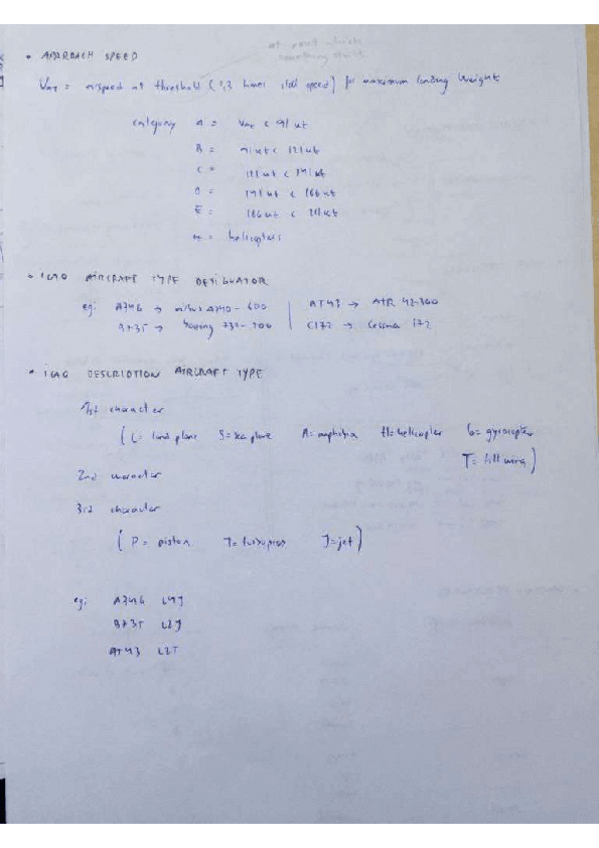 • APPROACH SPEED
Vat = airspeed at threshold (1,3 times stall speed) for maximum landing weight
category A = Vat < 91 kt
B = 91 kt < 121 kt
C = 121 kt < 141 kt
D = 141 kt < 166 kt
E = 166 kt < 211 kt
= helicopters
• ICAO AIRCRAFT TYPE DESIGNATOR
eg: A346 → airbus A340-600 | AT43 → ATR 42-300
B737 → boeing 737-700 | C172 → Cessna 172
• ICAO DESCRIPTION AIRCRAFT TYPE
1st character
(L = land plane S = sea plane A = amphibia H = helicopter G = gyrocopter
T = tilt wing)
2nd character
3rd character
(P = piston T = turboprop J = jet)
eg: A346 L4J
B737 L2J
AT43 L2T